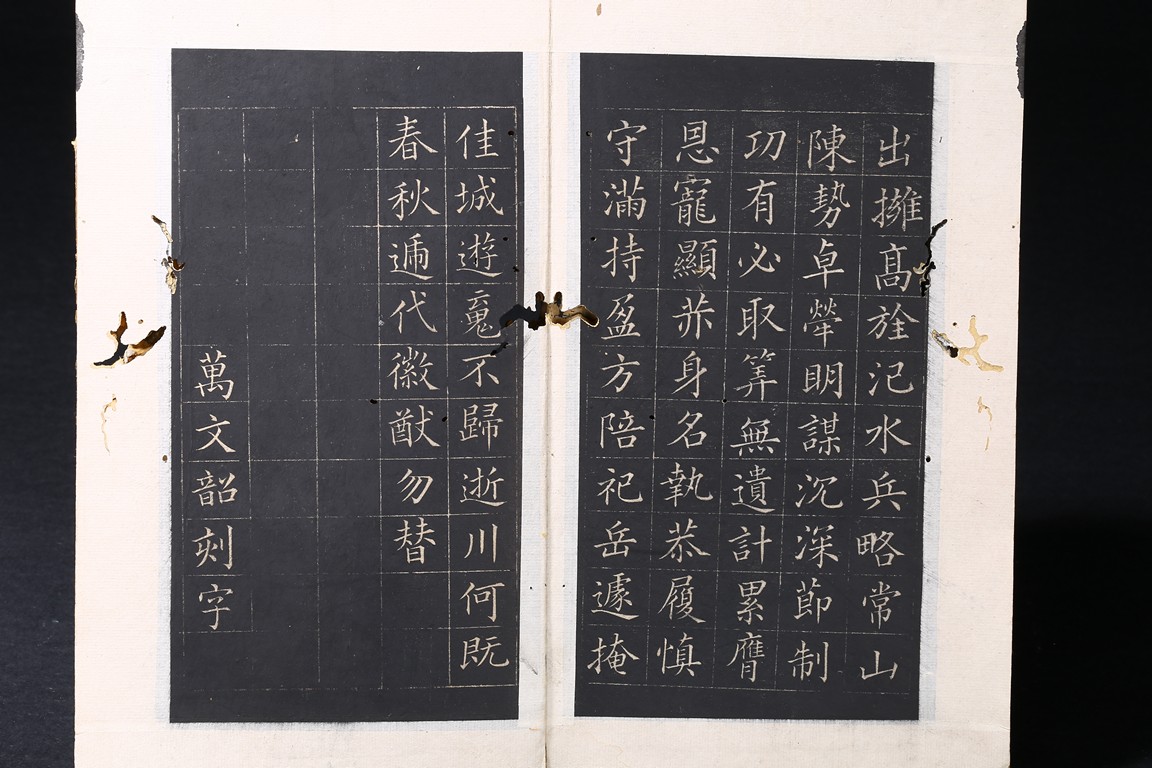 出擁髙旌汜水兵略常山
陳勢卓犖明謀沉深節制
㓛有必取筭無遺計累膺
恩寵顯荣身名執恭履慎
守滿持盈方陪祀岳遽掩
佳城遊䰟不歸逝川何既
春秋遞代徽猷勿替
萬文韶刻字